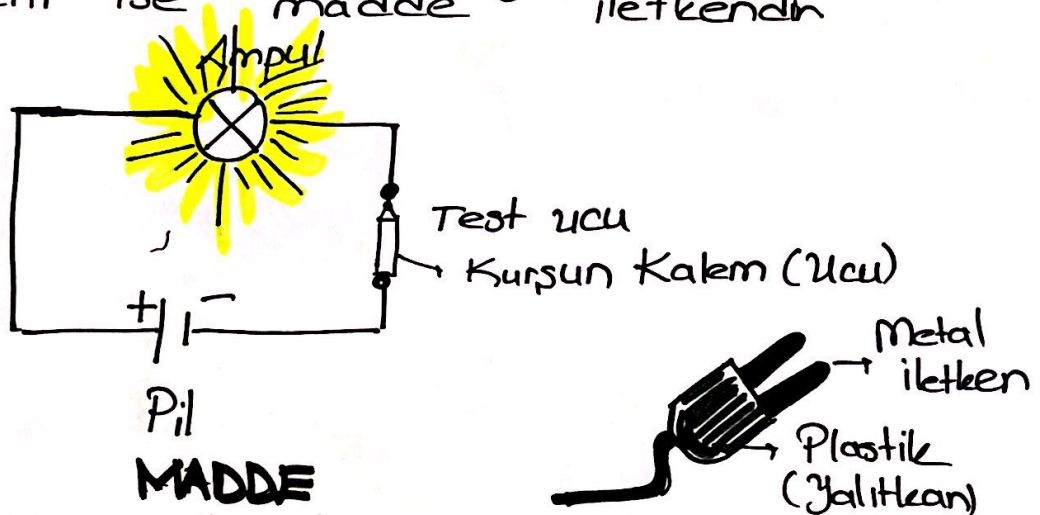 ise madde iletkendir
Ampul
Test ucu
Kurşun Kalem (Ucu)
+ -
Pil
Metal
iletken
Plastik
(Yalıtkan)
MADDE